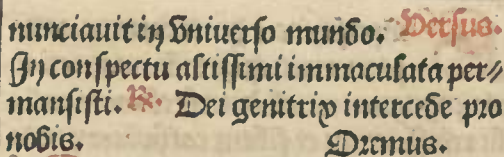 nunciauit in vniuerso mundo. Versus.
In conspectu altissimi immaculata per⸗
mansisti. ℟. Dei genitrix intercede pro
nobis. Oremus.